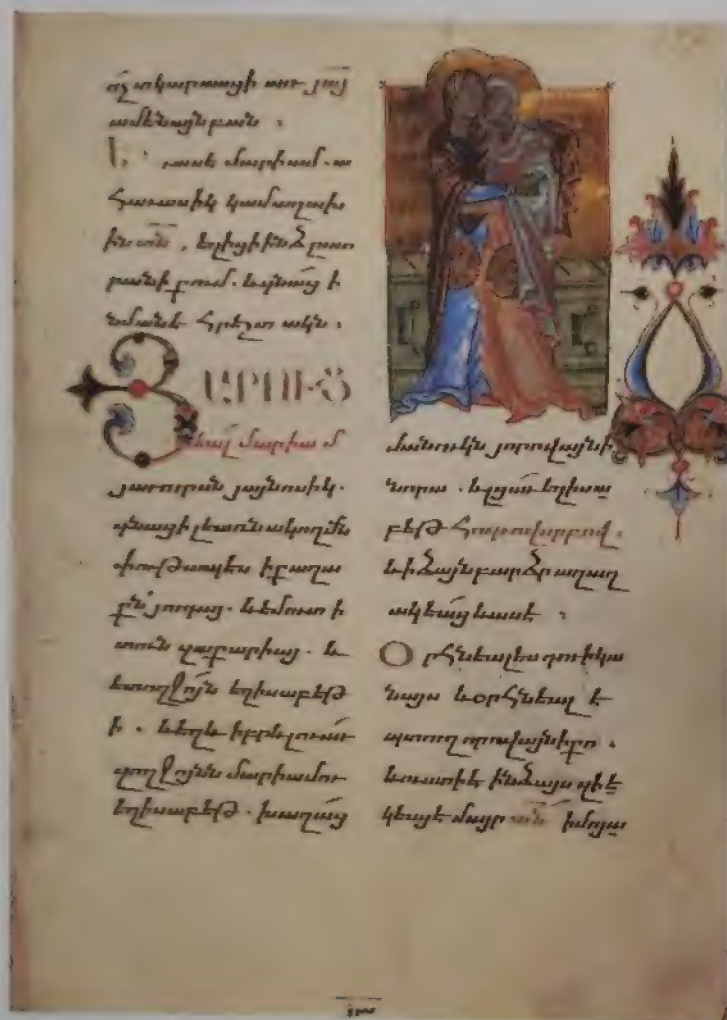 ոչ տկարասցի առ յա՟յ
ամենայն բան ։
Եւ ասէ մարիամ. ա
հաւասիկ կամ աղախ
ին տն՟, եղիցի ինձ ըստ
բանի քում. և գնաց ի
նմանէ հրեշտակն ։
ՅԱՐՈՒՑ
եալ մարիամ
յաւուրսն յայնոսիկ.
գնաց ի լեառնակողմն
փութապէս ի քաղա
քն յուդայ. և եմուտ ի
տուն զաքարիայ. և
ետ ողջոյն եղիսաբեթ
ի. և եղև իբրև լուաւ
զողջոյնն մարիամու
եղիսաբեթ. խաղաց
մանուկն յորովայնի
նորա. և լցաւ եղիսա
բեթ հոգւով սրբով.
և ի ձայն բարձր աղաղ
ակեաց և ասէ ։
Օրհնեալ ես դու ի կա
նայս և օրհնեալ է
պտուղ որովայնի քո.
և ուստի է ինձ այս զի ե
կեսցէ մայր տն՟ իմոյ ա